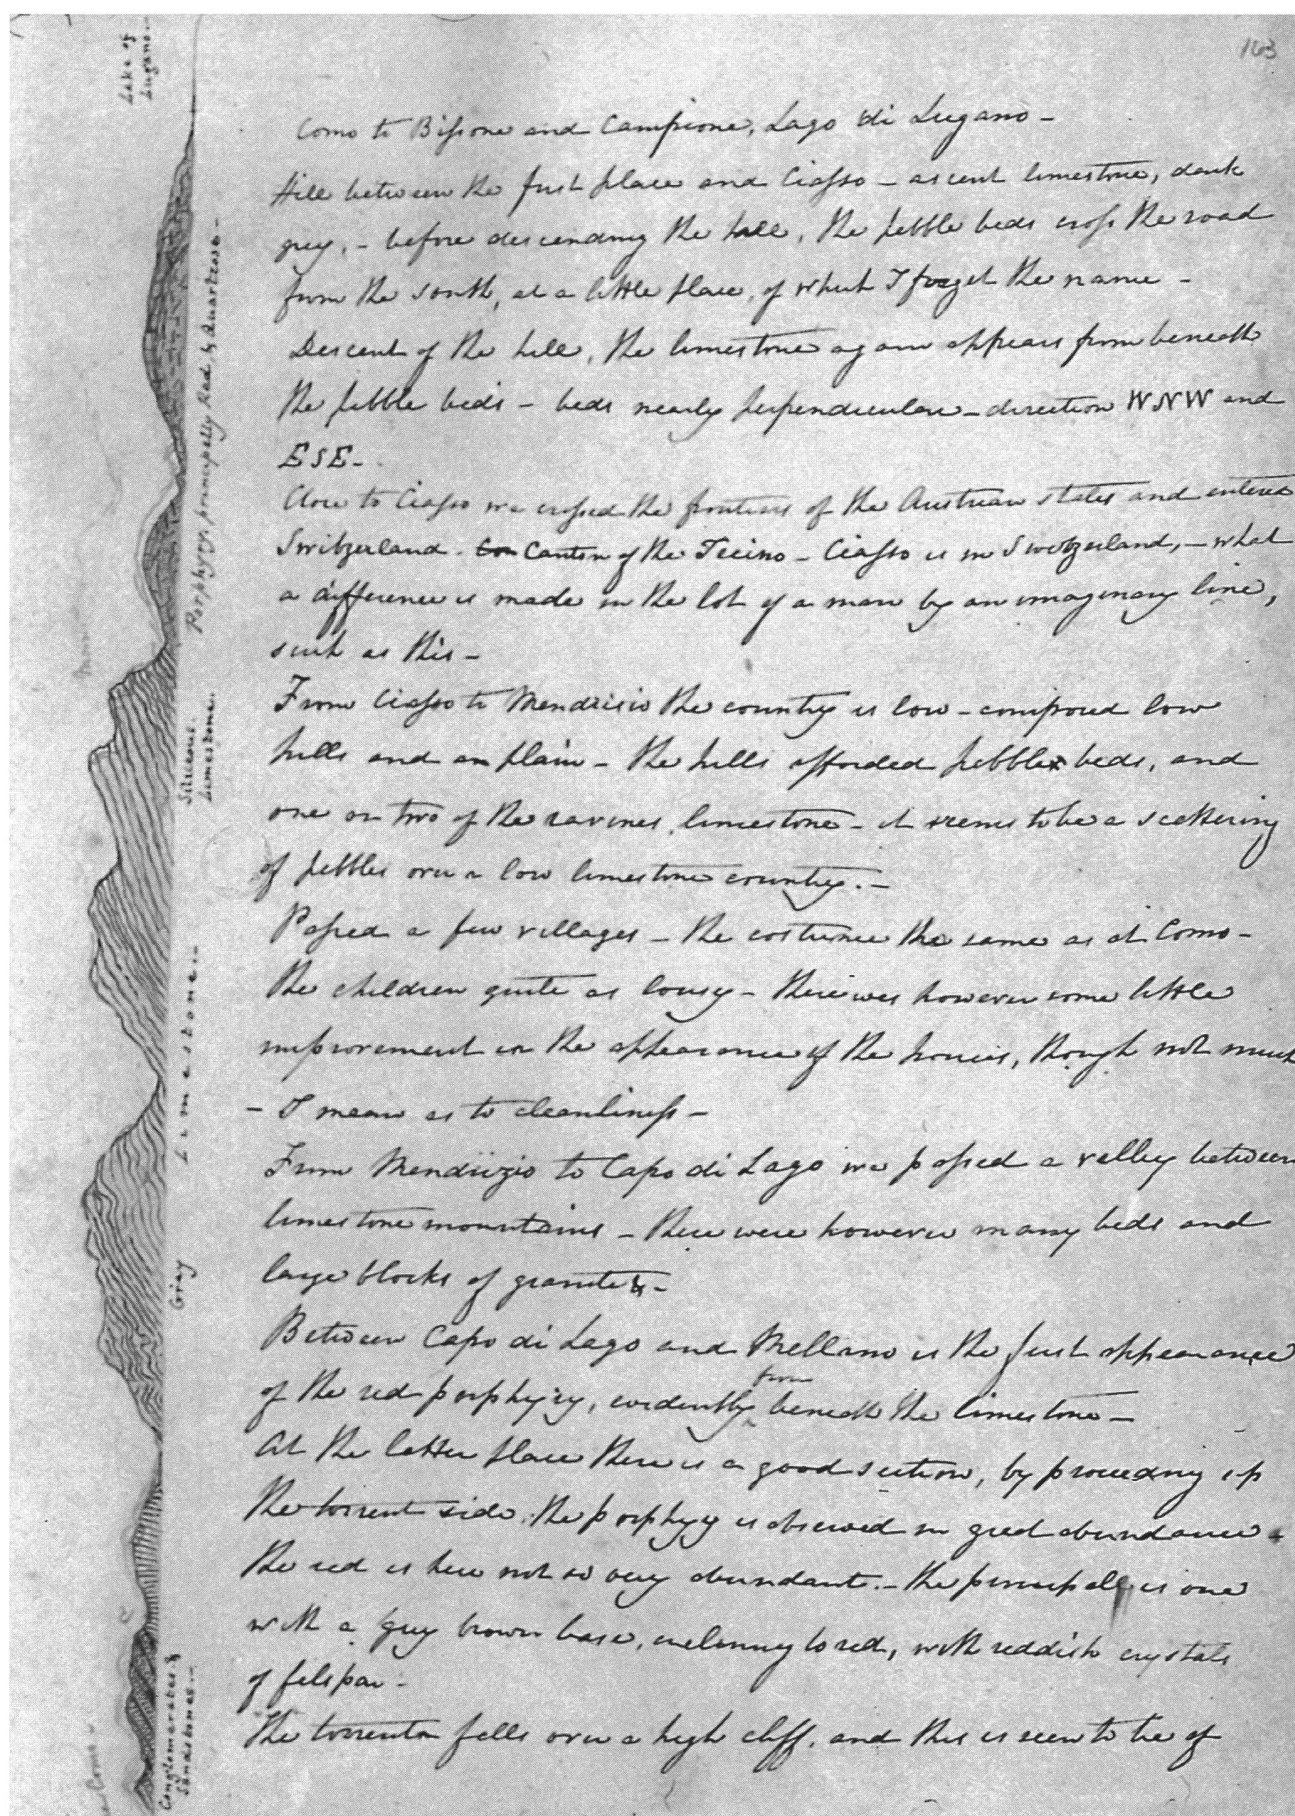 163
Como to Bissone and Campione, Lago di Lugano -
Hill between the first place and Ciasso - ascent limestone, dark
grey, - before descending the hill, the pebble beds cross the road
from the south, at a little place, of which I forget the name -
Descent of the hill, the limestone again appears from beneath
the pebble beds - beds nearly perpendicular - direction WNW and
ESE -
Close to Ciasso we crossed the frontiers of the Austrian states and entered
Switzerland. Con Canton of the Tecino - Ciasso is in Switzerland, - what
a difference is made in the lot of a man by an imaginary line,
such as this -
From Ciasso to Mendrisio the country is low - composed low
hills and plain - the hills afforded pebble beds, and
one or two of the ravines, limestone - it seems to be a scattering
of pebbles over a low limestone country. -
Passed a few villages - the costume the same as at Como -
the children quite as lousy - there was however some little
improvement in the appearance of the houses, though not much
- I mean as to cleanliness -
From Mendrizio to Capo di Lago we passed a valley between
limestone mountains - there were however many beds and
large blocks of granite -
Between Capo di Lago and Mellano is the first appearance
of the red porphyry, evidently from beneath the limestone -
At the latter place there is a good section, by proceeding up
the torrent side, the porphyry is observed in great abundance.
the red is here not so very abundant. - the principal is one
with a grey brown base, inclining to red, with reddish crystals
of felspar -
The torrent falls over a high cliff, and this is seen to be of
Lake of
Lugano.
Porphyry, principally Red, & Quartzose -
Siliceous
Limestone.
Gray Limestone. -
Conglomerates &
Sandstones. -
Como -